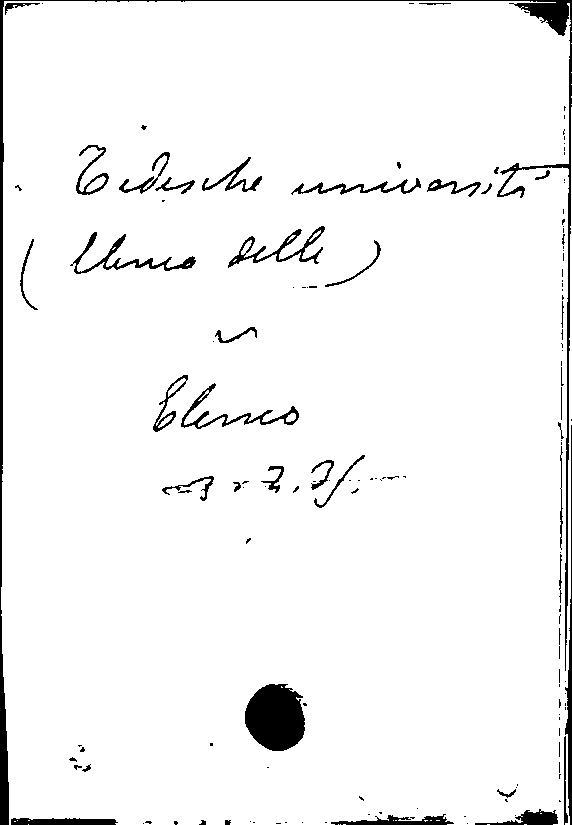 Tedesche università
(Elenco delle)
v
Elenco